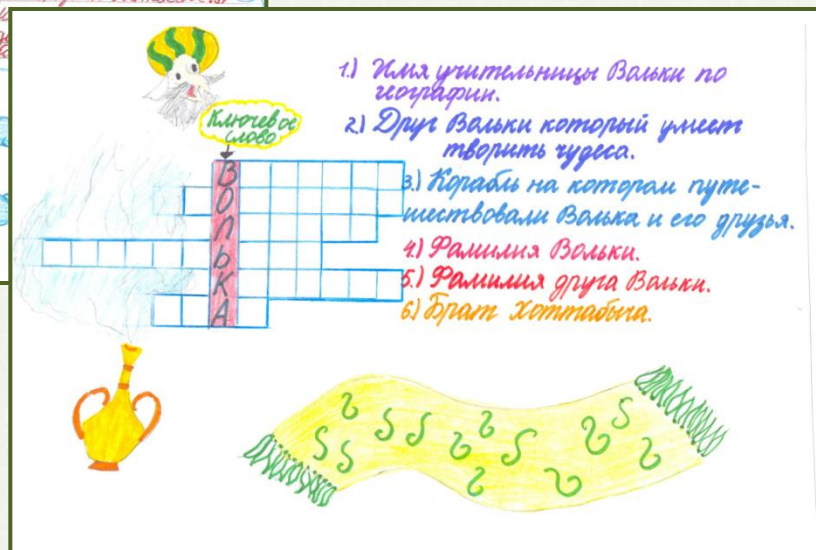 Ключевое
слово
ВОЛЬКА
1.) Имя учительницы Вольки по
географии.
2.) Друг Вольки который умеет
творить чудеса.
3.) Корабль на котором путе-
шествовали Волька и его друзья.
4.) Фамилия Вольки.
5.) Фамилия друга Вольки.
6.) Брат Хоттабыча.